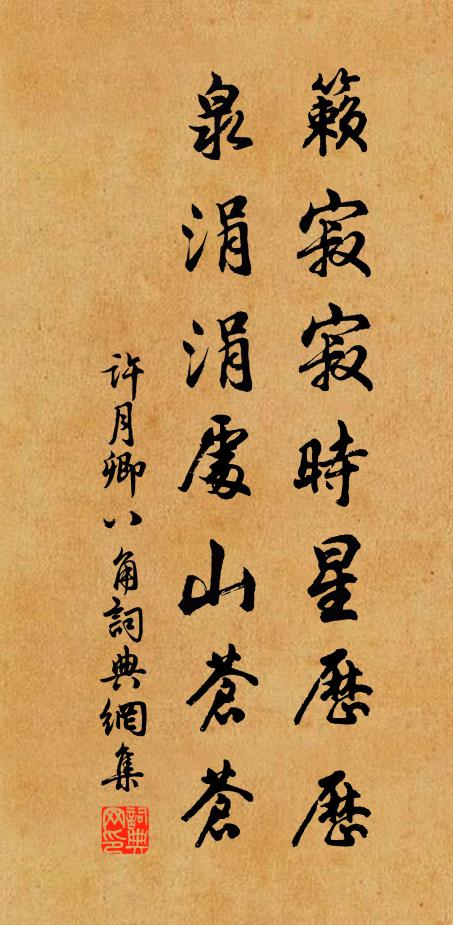 籟寂寂時星歷歷
泉涓涓處山蒼蒼
許月卿八角詞典網集
詞典网印